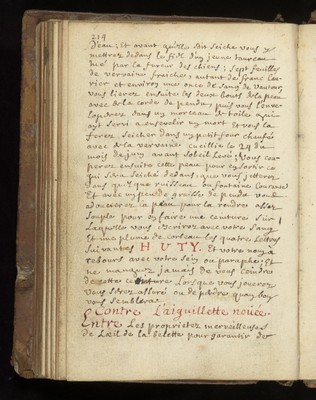 214
d'eau; Et avant qu'elle soit seiche vous y
mettrez dedans le fiel d'un jeune taureau
tué par la fureur des chiens; Sept feuilles
de vervaine fraiche, autant de franc lau-
rier et environ une once de sang de vautour
vous lierez ensuite les deux bouts de la peau
avec de la corde de pendu, puis vous l'enve-
lopperez dans un morceau de toile qui
ayt servi a ensevelir un mort et vous la
ferez seicher dans un petit four chaufé
avec de la vervaine cueillie le 24 du
mois de juin avant soleil levé; Vous cou-
perez ensuite cette peau pour en sortir ce
qui sera seiché dedans, que vous jetterez
dans quelque ruisseau ou fontaine courante
Et avec un peu de graisse de pendu vous
adoucirez la peau pour la rendre assez
souple pour en faire une ceinture sur
laquelle vous écrirez avec votre sang
Et une plume de corbeau les quatre lettres
suivantes H U T Y. Et votre nom a
rebours avec votre sein ou paraphe; Et
ne manquez jamais de vous ceindre
de cette ceinture lorsque vous jouerez
vous serez assuré ou de perdre quoy bon
vous semblera.
Contre L'aiguillette nouée.
Entre Les proprietez merveilleuses
de L'œil de la belette pour garantir de